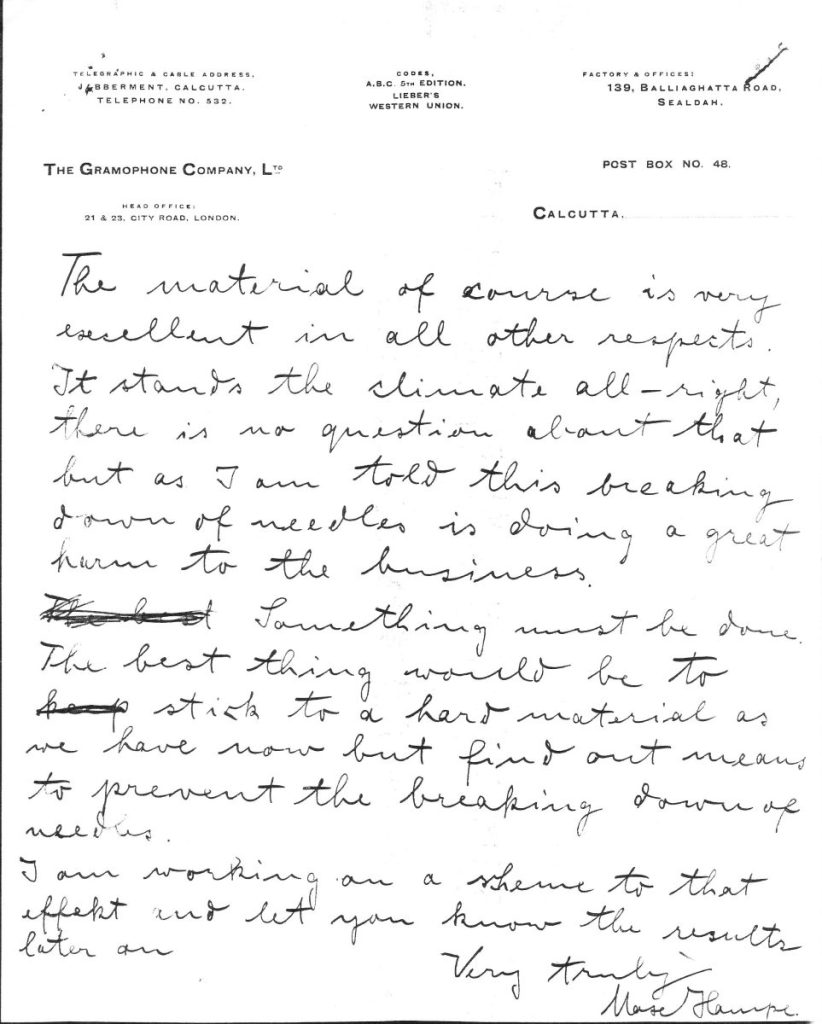 TELEGRAPHIC & CABLE ADDRESS,
JABBERMENT, CALCUTTA.
TELEPHONE NO. 532.
CODES,
A.B.C. 5TH EDITION.
LIEBER'S
WESTERN UNION.
FACTORY & OFFICES:
139, BALLIAGHATTA ROAD,
SEALDAH.
THE GRAMOPHONE COMPANY, LTD
HEAD OFFICE:
21 & 23, CITY ROAD, LONDON.
POST BOX NO. 48.
CALCUTTA,
The material of course is very
excellent in all other respects.
It stands the climate all-right,
there is no question about that
but as I am told this breaking
down of needles is doing a great
harm to the business.
The best Something must be done.
The best thing would be to
keep stick to a hard material as
we have now but find out means
to prevent the breaking down of
needles.
I am working on a sheme to that
effekt and let you know the results
later on
Very truly
Hampe.